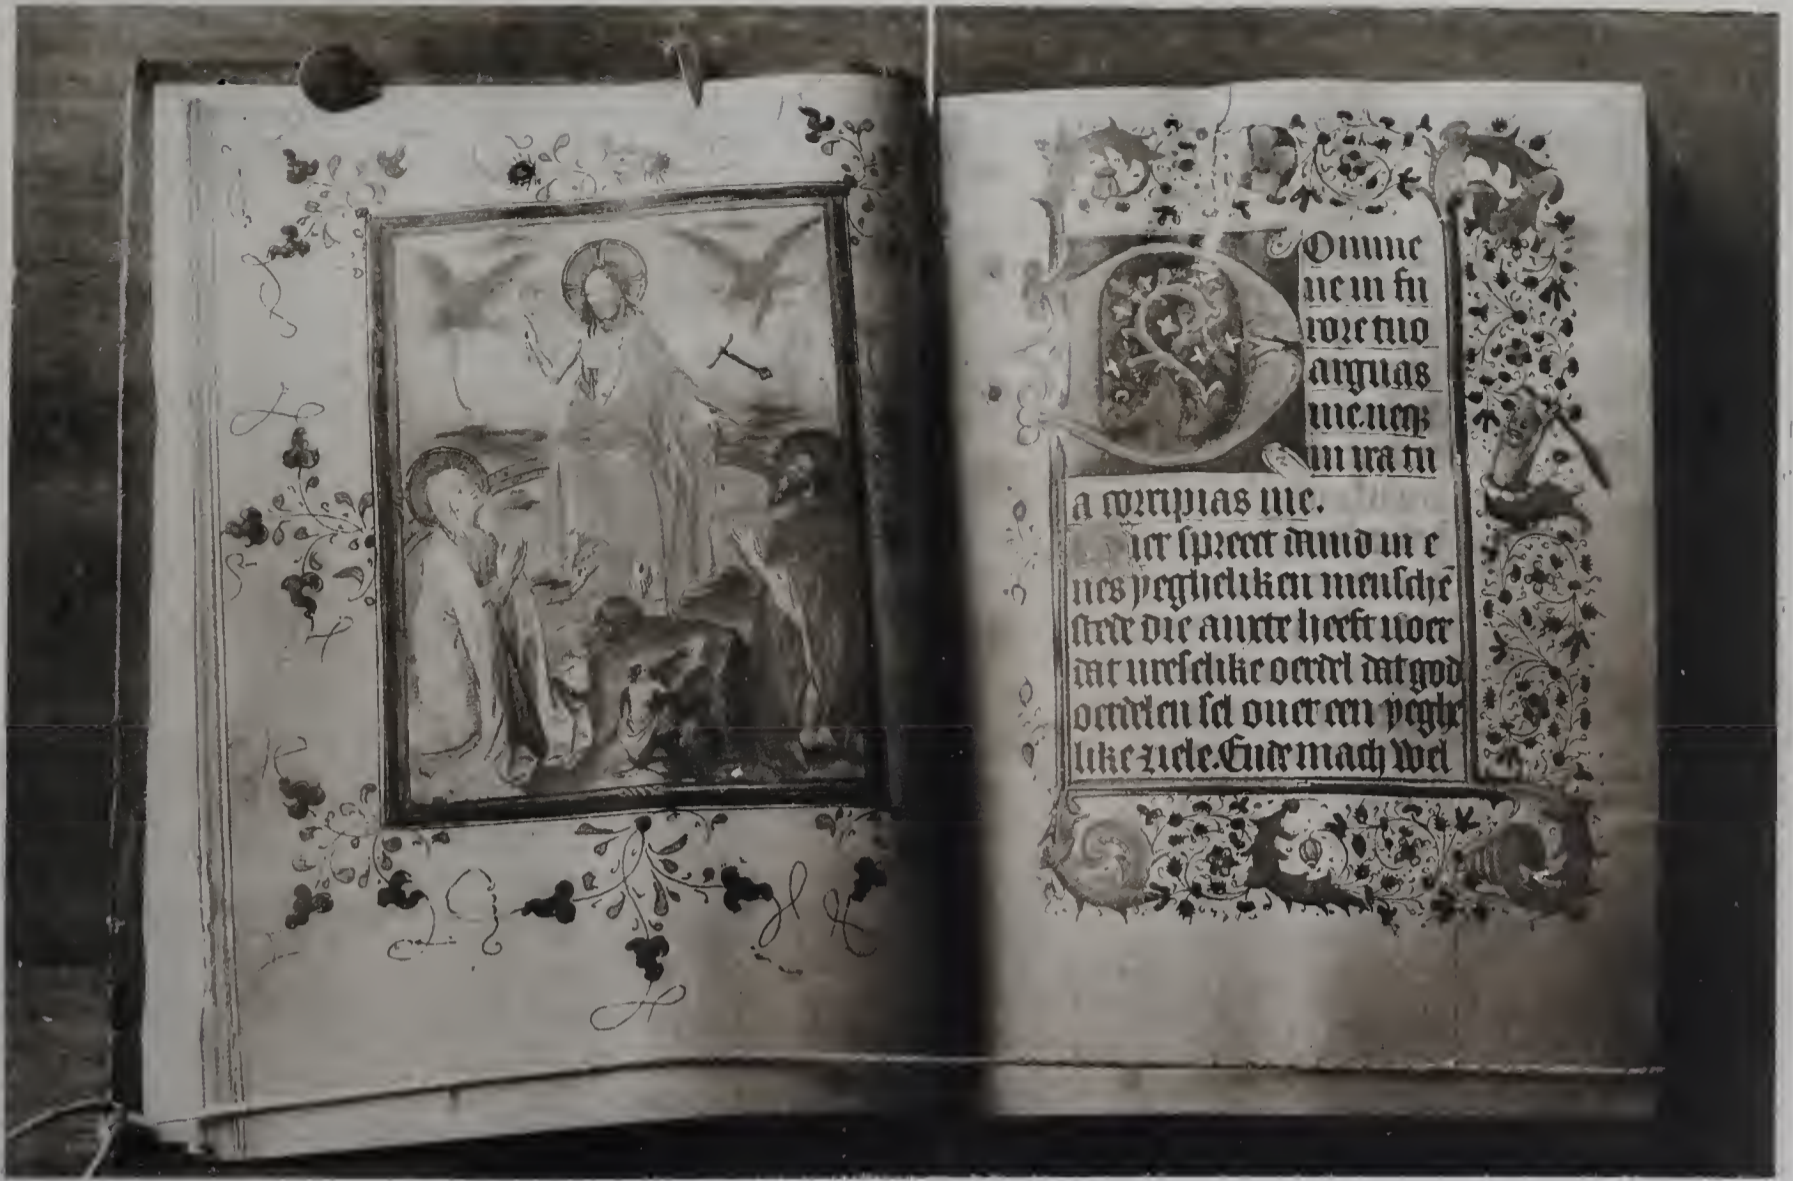 Domine
ne in fu
rore tuo
arguas
me. neqz
in ira tu
a corripias me.
Hier spreect dauid in e
nes yegheliken menschē
stede die anxte heeft voer
dat vreselike oerdel dat god
oerdelen sel ouer een yeghe
like ziele. Ende mach wel